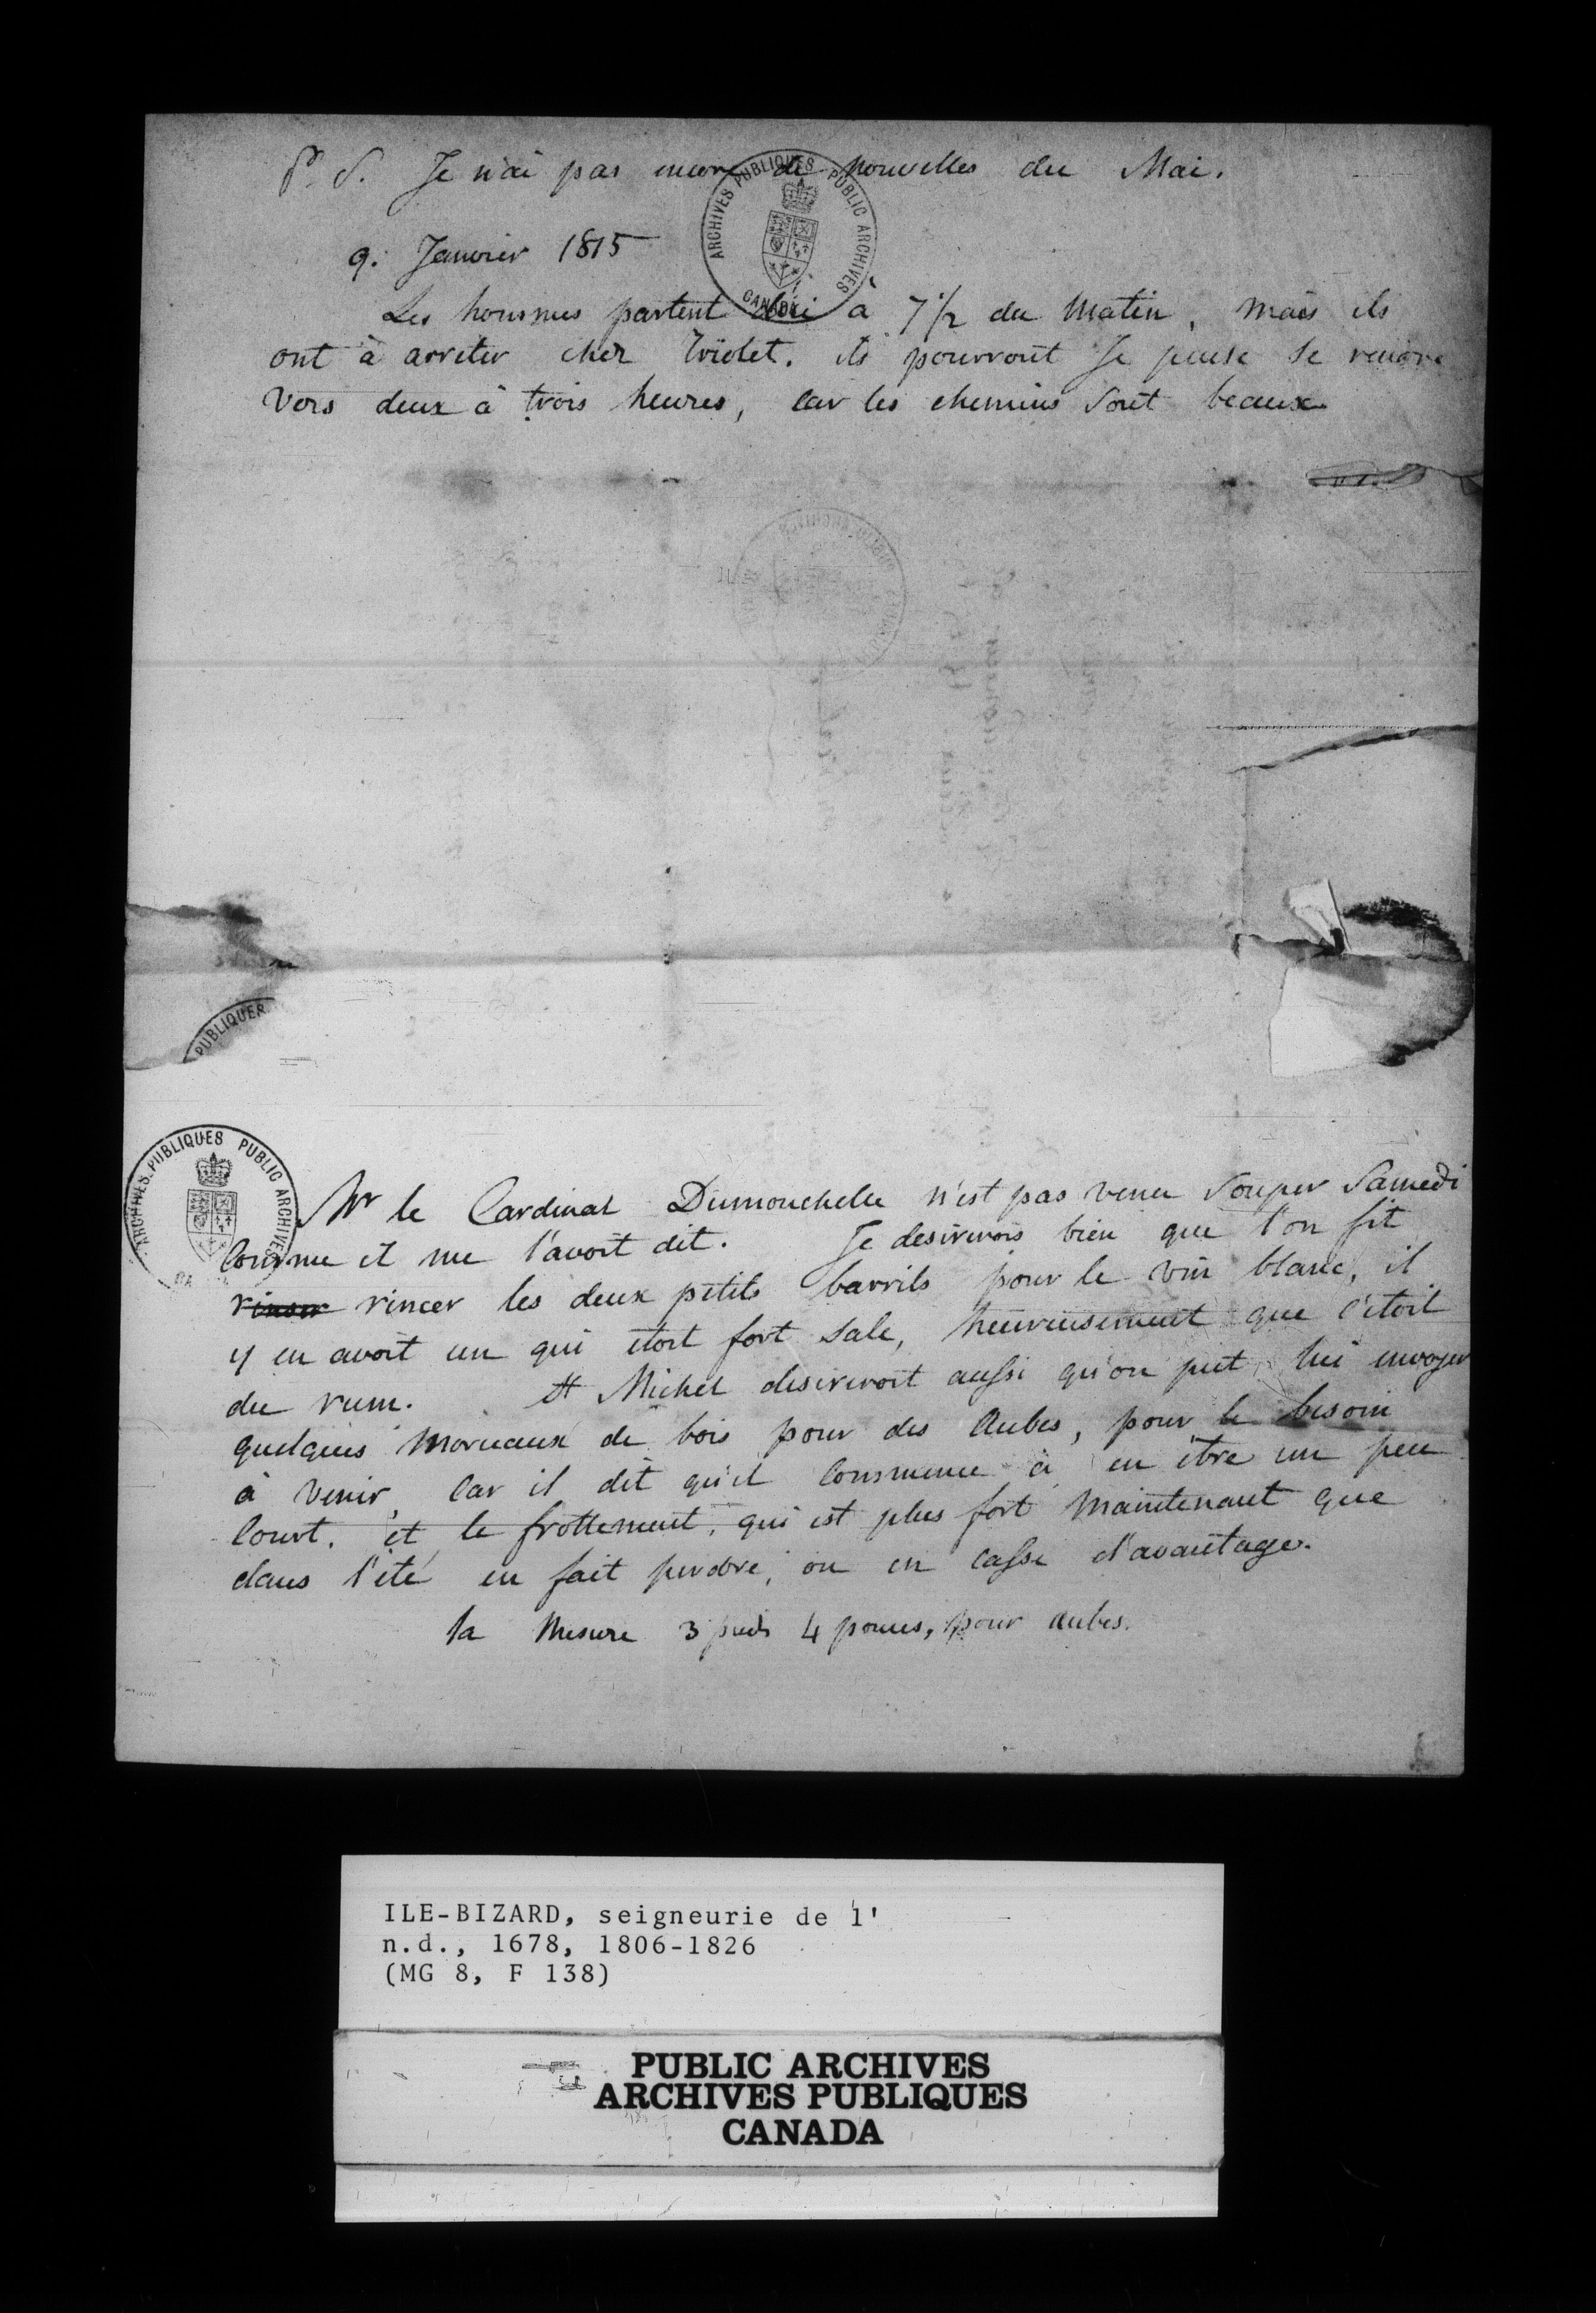 P. S. Je n'ai pas encore de nouvelles du Mai.
9. Janvier 1815
Les hommes partent d'ici à 7 1/2 du Matin, mais ils
ont à arreter chez Triolet. ils pourront Je pense se rendre
vers deux à trois heures, car les chemins sont beaux
ARCHIVES PUBLIQUES PUBLIC ARCHIVES
CANADA
PUBLIQUES
ARCHIVES PUBLIQUES PUBLIC ARCHIVES
Mr le Cardinal Dumouchelle n'est pas venu souper Samedi
comme il me l'avoit dit. Je desirerois bien que l'on fit
rinser rincer les deux petits barrils pour le vin blanc, il
y en avoit un qui etoit fort sale, heureusement que c'étoit
du rum. St Michel desireroit aussi qu'on put lui envoyer
quelques morceaux de bois pour des Aubes, pour le besoin
à venir, car il dit qu'il commence à en être un peu
court. et le frottement, qui est plus fort maintenant que
dans l'été en fait perdre, ou en casse d'avantage.
la Mesure 3 pieds 4 pouces, pour aubes.
ILE-BIZARD, seigneurie de l'
n.d., 1678, 1806-1826
(MG 8, F 138)
PUBLIC ARCHIVES
ARCHIVES PUBLIQUES
CANADA